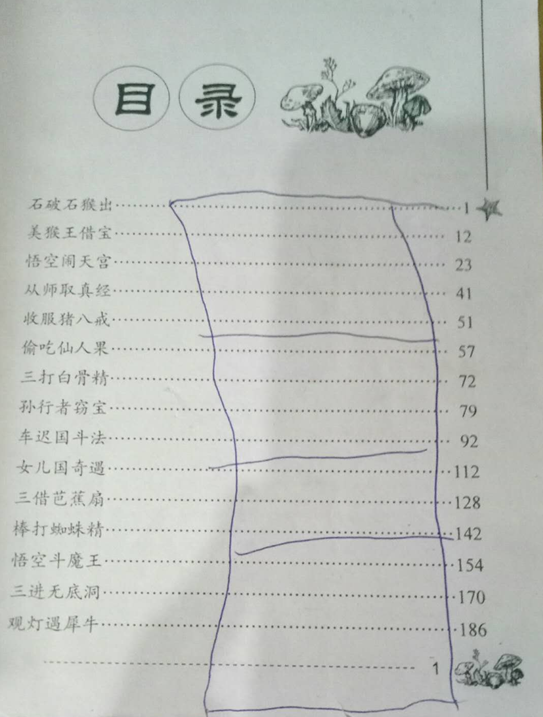 目录
石破石猴出 1
美猴王借宝 12
悟空闹天宫 23
从师取真经 41
收服猪八戒 51
偷吃仙人果 57
三打白骨精 72
孙行者窃宝 79
车迟国斗法 92
女儿国奇遇 112
三借芭蕉扇 128
棒打蜘蛛精 142
悟空斗魔王 154
三进无底洞 170
观灯遇犀牛 186
1